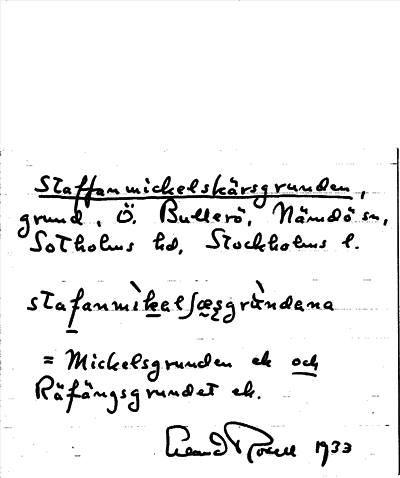 Staffanmickelskärsgrunden,
grund, Ö. Bullerö, Nämdö sn,
Sotholms hd, Stockholms l.
stafanmìkəalʃæsgrùndəna
= Mickelsgrunden ek och
Räfängsgrundet ek.
1933